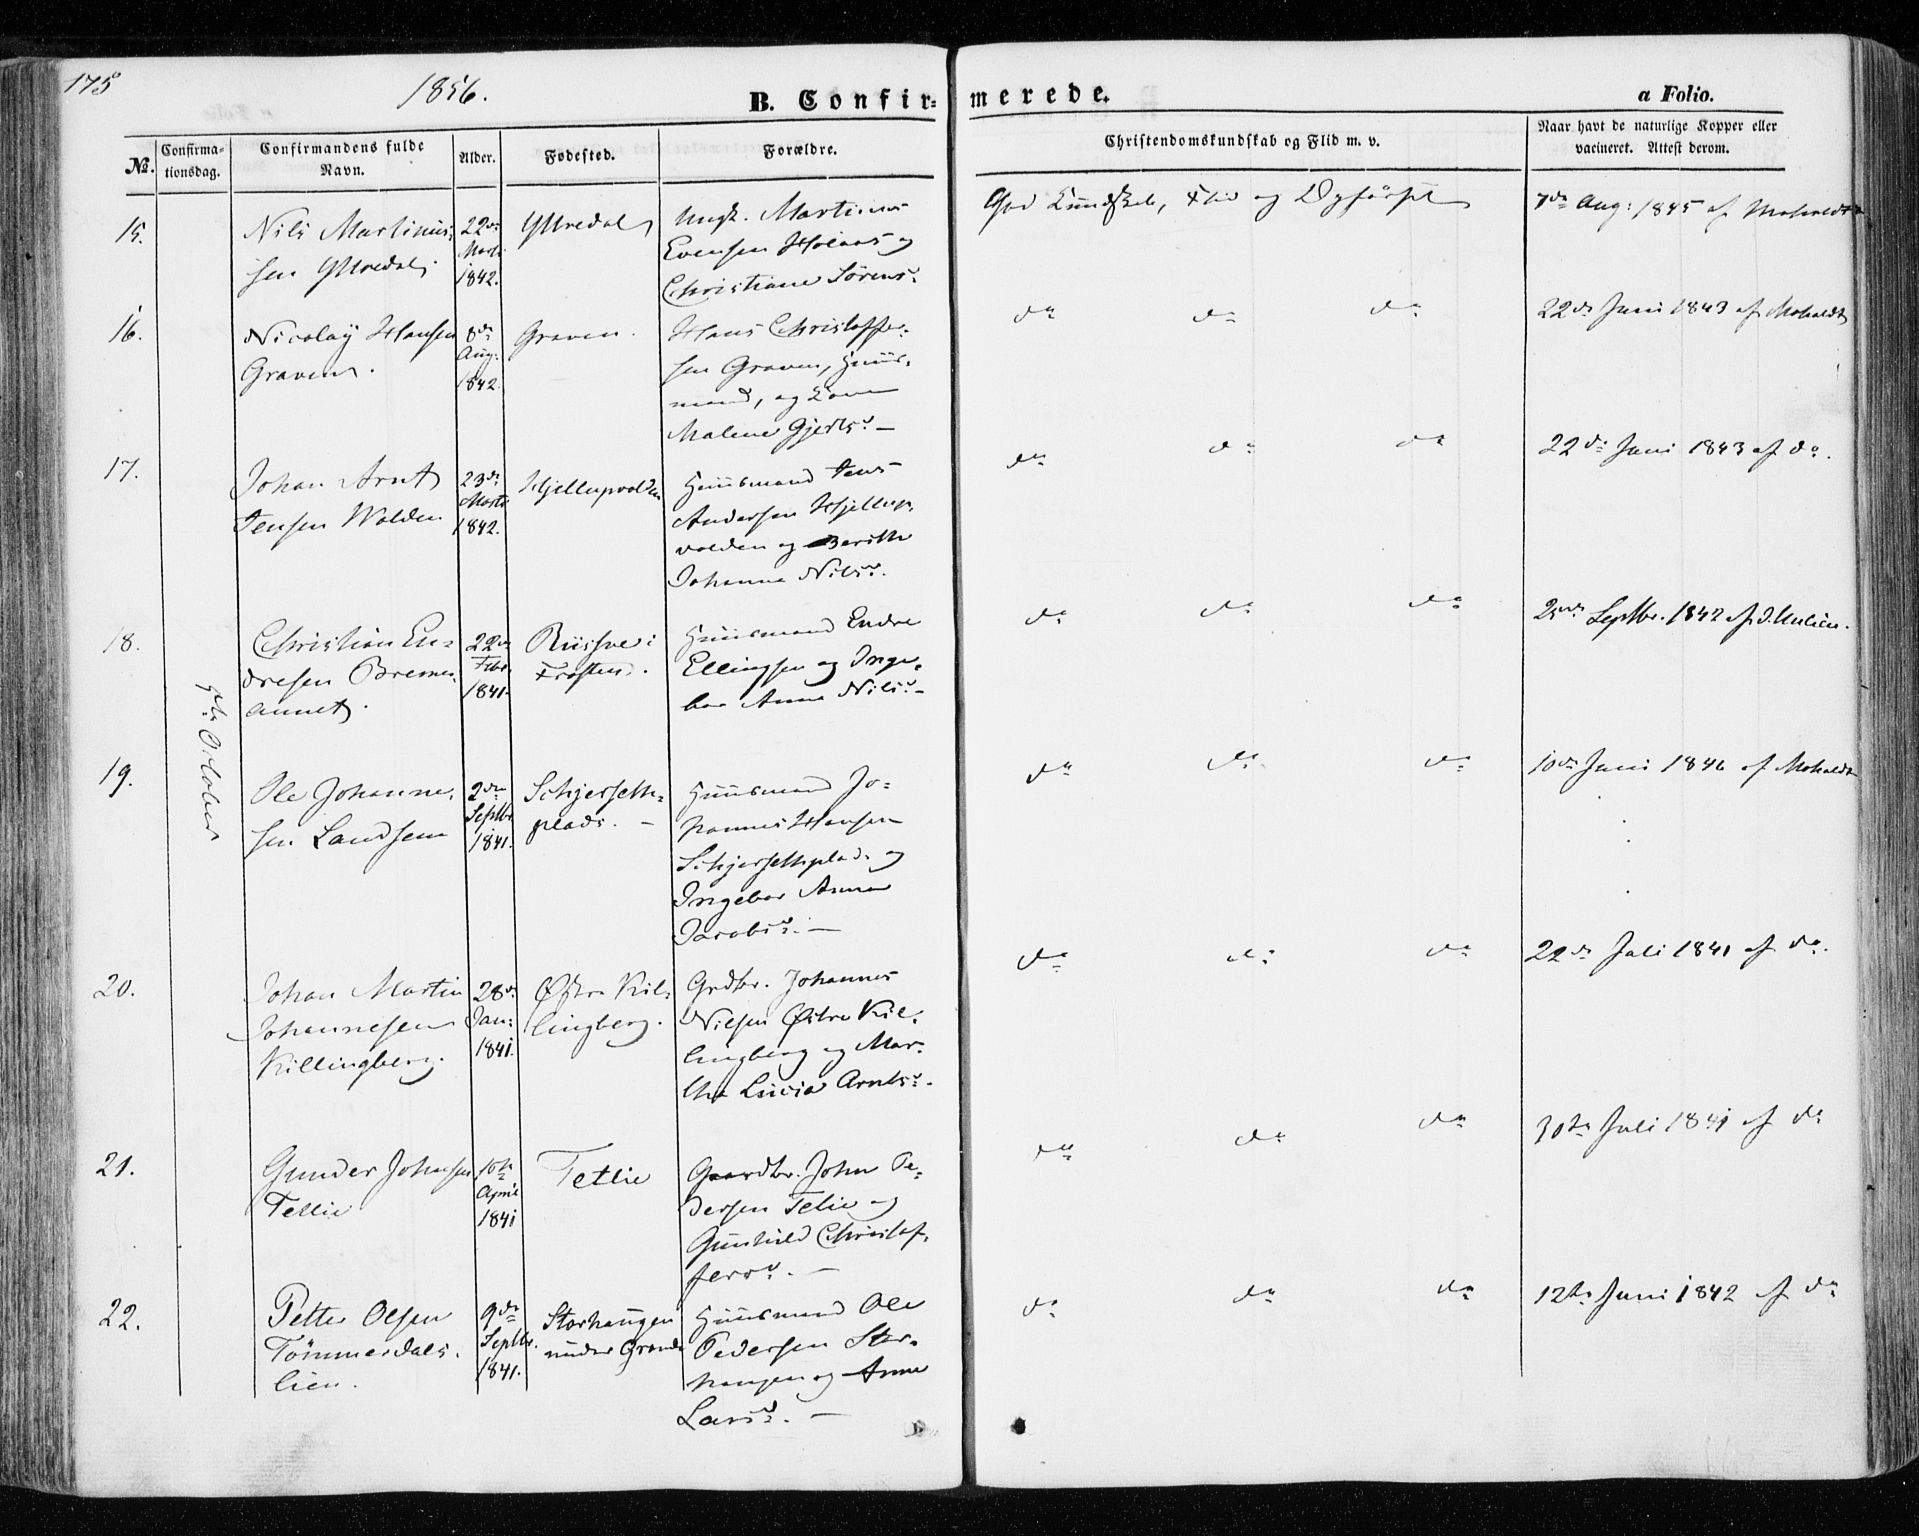 175
1856.
B. Confir-
merede.
a Folio.
№.
Confirma-
tionsdag.
Confirmandens fulde
Navn.
Alder.
Fødested.
Forældre.
Christendomskundskab og Flid m. v.
Naar havt de naturlige Kopper eller
vacineret. Attest derom.
5te October
15.
Nils Martinus-
sen Yttredal
22de
Marts
1842.
Yttredal
Ungk. Martinus
Evensen Holaas og
Christiane Sørensd.
God Kundskab, Flid og Opførsel
7de Aug: 1845 af Moholdt
16.
Nicolay Hansen
Graven.
8de
Aug.
1842.
Graven.
Hans Christoffer-
sen Graven, Huus-
mand, og Kone
Malene Gjertsd. —
do do do
22de Juni 1843 af Moholdt
17.
Johan Arnt
Jensen Wolden
23de
Marts
1842.
Hjellupvolden
Huusmand Jens
Andersen Hjellup-
volden og Berith
Johanna Nilsd.
do do do
22de Juni 1843 af do.
18.
Christian En-
dresen Bremer-
annet.
22de
Febr.
1841.
Frosten.
Huusmand Endre
Ellingsen og Inge-
bor Anna Nilsd. —
do do do
Septbr. 1842 af
19.
Ole Johanne-
sen Landsem
2den
Septbr.
1841.
Schjerseth-
plads. —
Huusmand Jo-
hannes Hansen
Schjersethplads og
Ingebor Anna
Jacobsd. —
do do do
10de Juni 1846 af Moholdt
20.
Johan Martin
Johannesen
Killingberg.
28de
Jan:
1841.
Østre Kil-
lingberg.
Grdbr. Johannes
Nilsen Østre Kil-
lingberg og Mar-
tha Lucia Arntsd. -
do do do
22de Juli 1841 af do.
21.
Gunder Johnsen
Tetlie
10de
April
1841
Tetlie
Gaardbr. John Pe-
dersen Telie og
Gunhild Christof-
fersd. —
do do do
30te Juli 1841 af do
22.
Petter Olsen
Tömmerdals-
lien.
9de
Septbr.
1841.
Storhaugen
under Grande
Huusmand Ole
Pedersen Stor-
haugen og Anne
Larsd. —
do do do
12te Juni 1842 af do